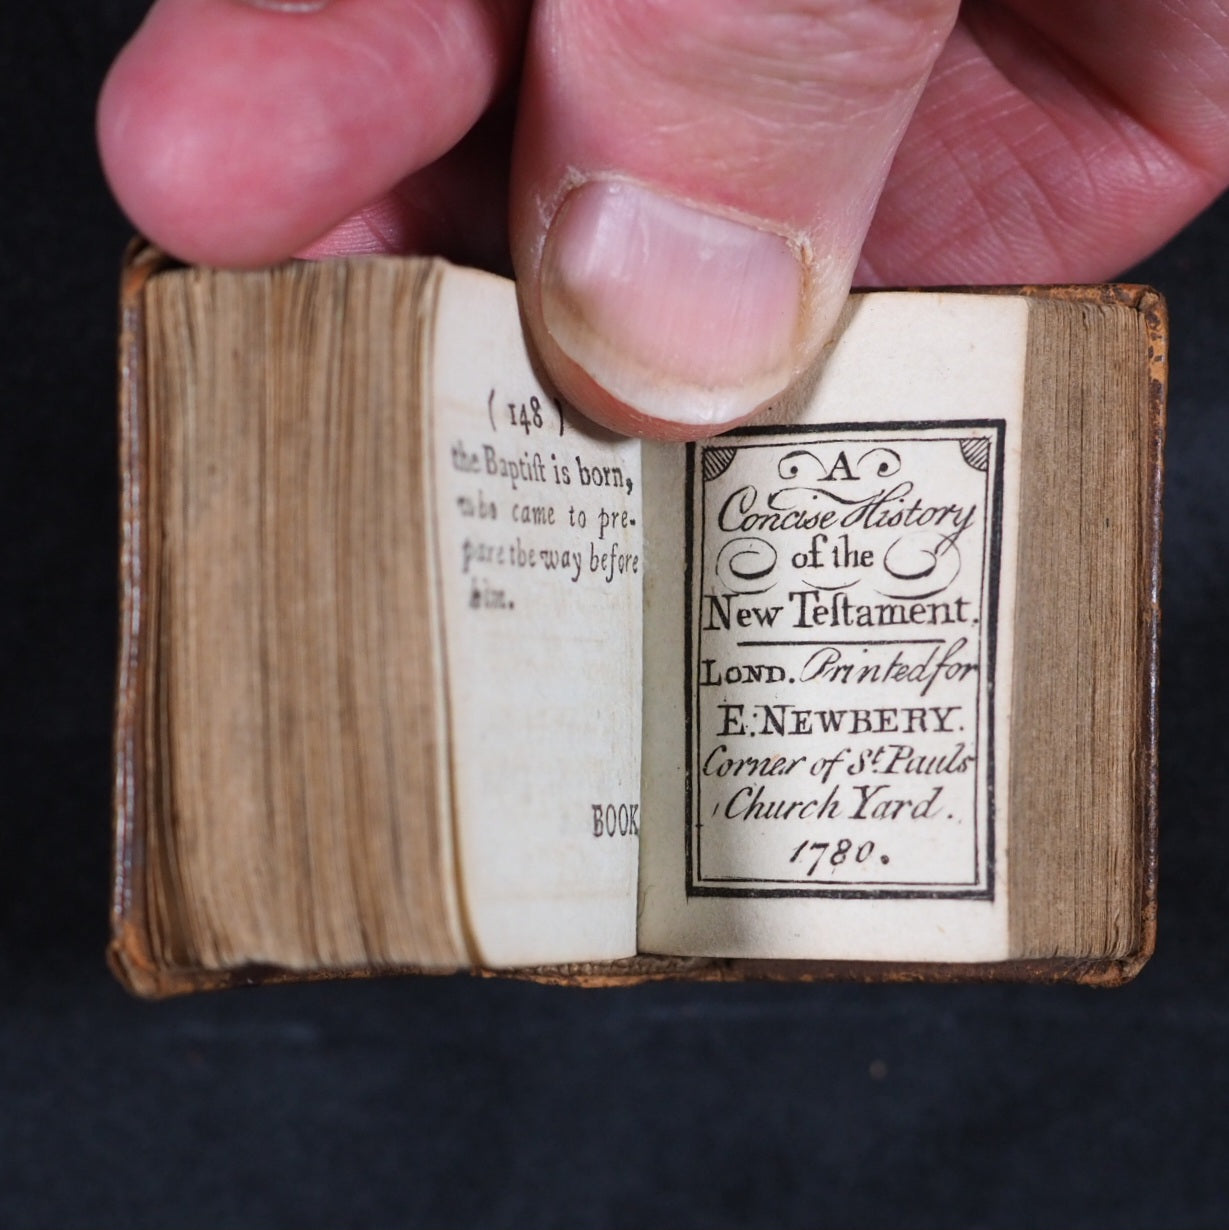 ( 148 )
the Baptiſt is born,
who came to pre-
pare the way before
him.
BOOK
A
Concise History
of the
New Teſtament.
LOND. Printed for
E. NEWBERY.
Corner of St. Pauls
Church Yard.
1780.